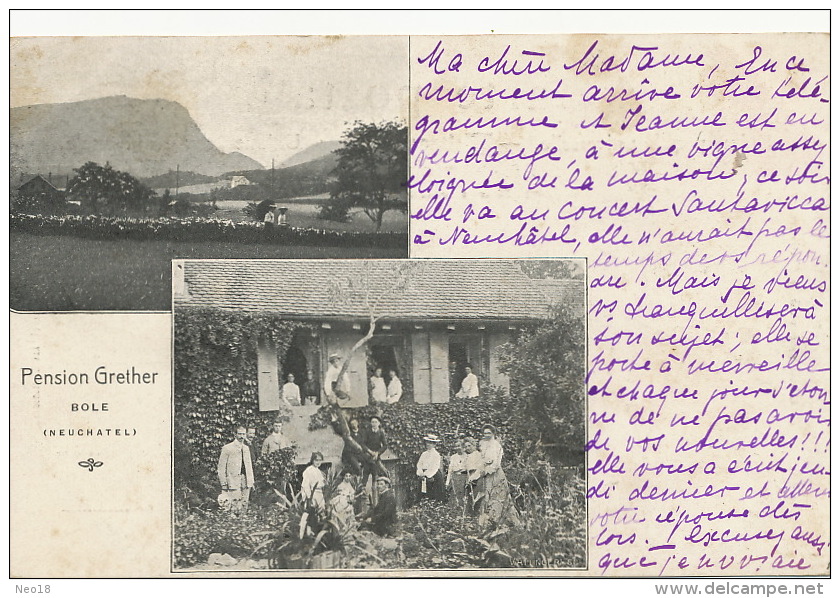 Ma chère Madame, En ce
moment arrive votre télé-
gramme et Jeanne est en
vendange, à une vigne assez
éloignée de la maison, ce soir
elle va au Concert Santavicca
à Neuchâtel, elle n'aurait pas le
temps de vs répon
dre. Mais je viens
vs tranquilliser à
son sujet; elle se
porte à merveille
et chaque jour s'éton
ne de ne pas avoir
de vos nouvelles!!!
elle vous a écrit jeu-
di dernier et attend
votre réponse dès
lors. Excusez aussi
que je
Pension Grether
BOLE
(NEUCHATEL)
Neo18
www.delcampe.net